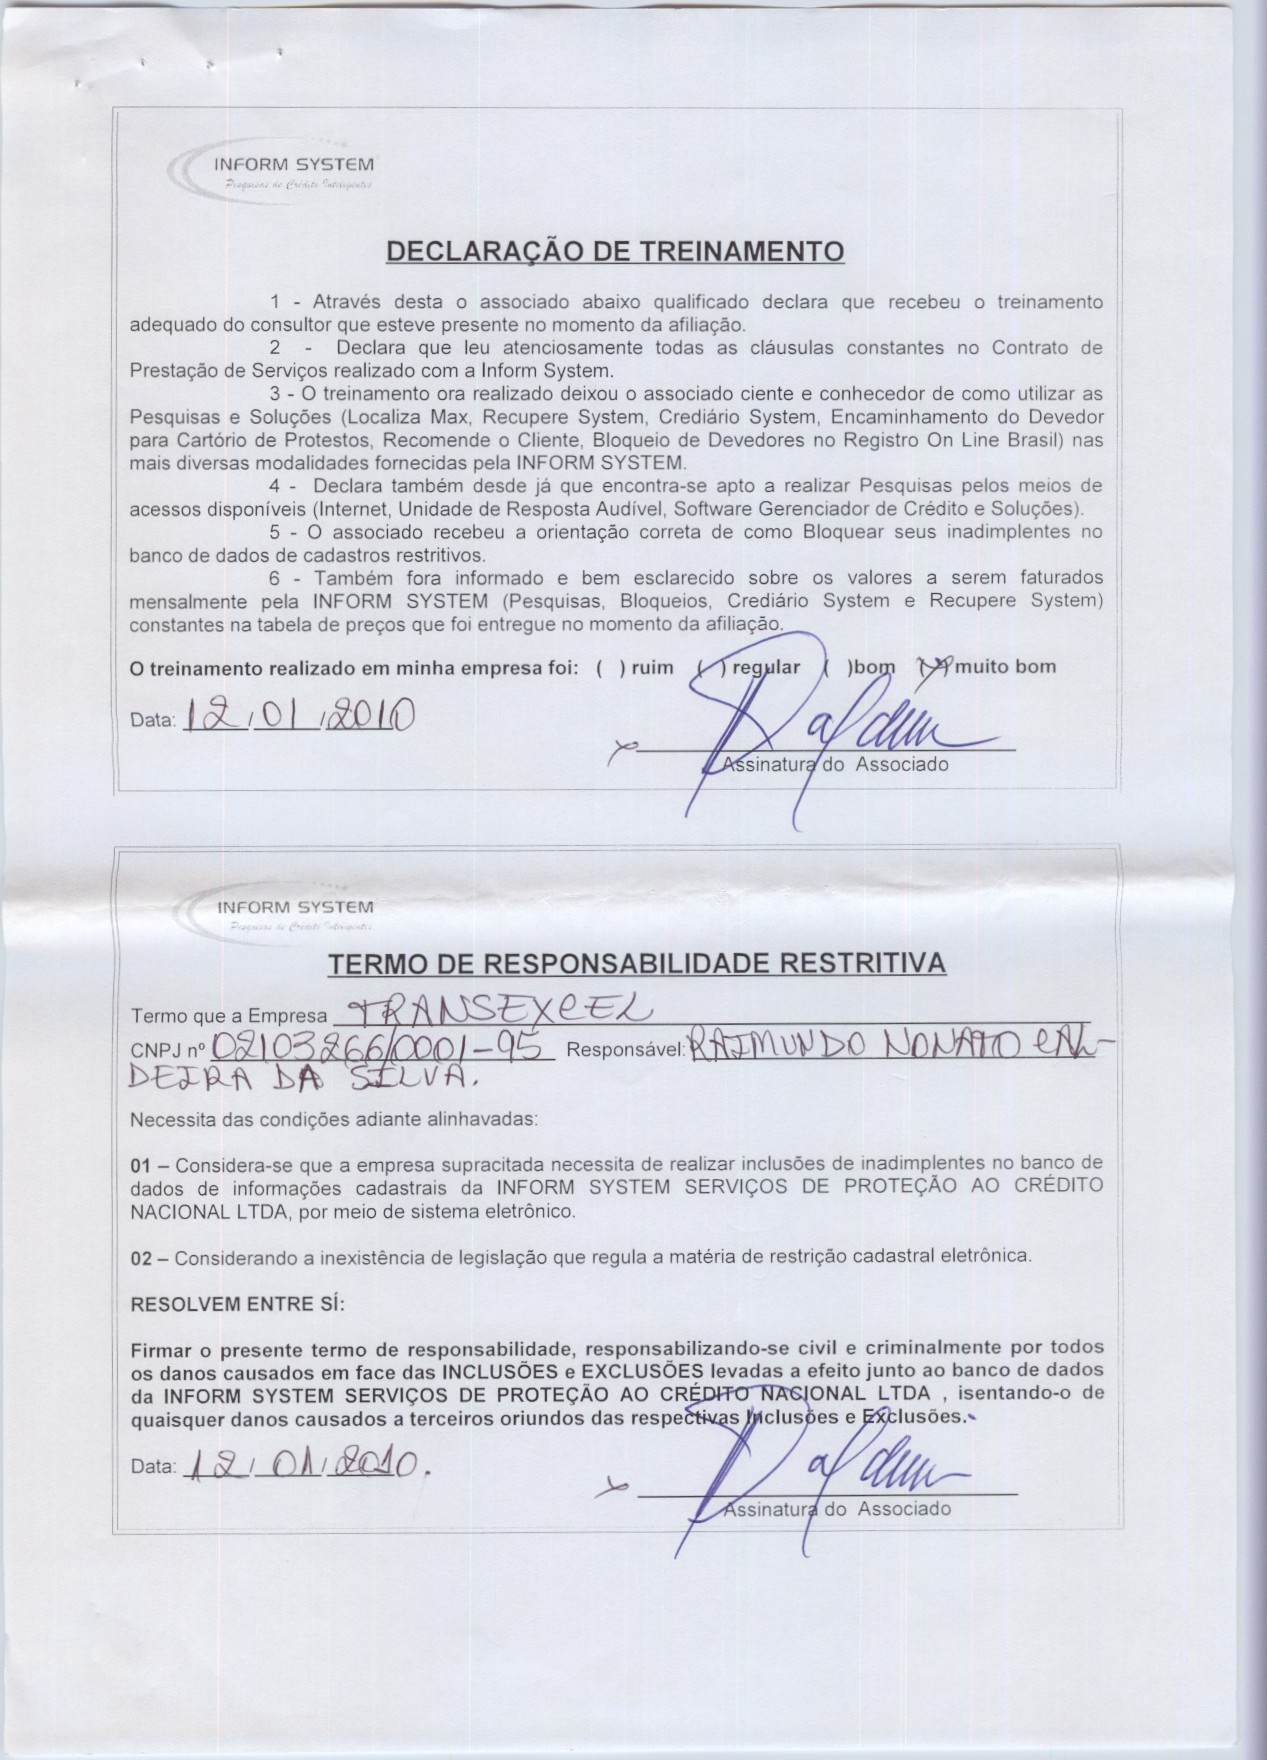 INFORM SYSTEM
Pesquisas de Crédito Inteligentes
DECLARAÇÃO DE TREINAMENTO
1 - Através desta o associado abaixo qualificado declara que recebeu o treinamento
adequado do consultor que esteve presente no momento da afiliação.
2 - Declara que leu atenciosamente todas as cláusulas constantes no Contrato de
Prestação de Serviços realizado com a Inform System.
3 - O treinamento ora realizado deixou o associado ciente e conhecedor de como utilizar as
Pesquisas e Soluções (Localiza Max, Recupere System, Crediário System, Encaminhamento do Devedor
para Cartório de Protestos, Recomende o Cliente, Bloqueio de Devedores no Registro On Line Brasil) nas
mais diversas modalidades fornecidas pela INFORM SYSTEM.
4 - Declara também desde já que encontra-se apto a realizar Pesquisas pelos meios de
acessos disponíveis (Internet, Unidade de Resposta Audível, Software Gerenciador de Crédito e Soluções).
5 - O associado recebeu a orientação correta de como Bloquear seus inadimplentes no
banco de dados de cadastros restritivos.
6 - Também fora informado e bem esclarecido sobre os valores a serem faturados
mensalmente pela INFORM SYSTEM (Pesquisas, Bloqueios, Crediário System e Recupere System)
constantes na tabela de preços que foi entregue no momento da afiliação.
O treinamento realizado em minha empresa foi: ( ) ruim ( ) regular ( )bom (X) muito bom
Data: 12/01/2010
Assinatura do Associado
INFORM SYSTEM
Pesquisas de Crédito Inteligentes
TERMO DE RESPONSABILIDADE RESTRITIVA
Termo que a Empresa TRANSEXCEL
CNPJ nº 02103266/0001-95 Responsável: RAIMUNDO NONATO CAL-
DEIRA DA SILVA.
Necessita das condições adiante alinhavadas:
01 – Considera-se que a empresa supracitada necessita de realizar inclusões de inadimplentes no banco de
dados de informações cadastrais da INFORM SYSTEM SERVIÇOS DE PROTEÇÃO AO CRÉDITO
NACIONAL LTDA, por meio de sistema eletrônico.
02 – Considerando a inexistência de legislação que regula a matéria de restrição cadastral eletrônica.
RESOLVEM ENTRE SÍ:
Firmar o presente termo de responsabilidade, responsabilizando-se civil e criminalmente por todos
os danos causados em face das INCLUSÕES e EXCLUSÕES levadas a efeito junto ao banco de dados
da INFORM SYSTEM SERVIÇOS DE PROTEÇÃO AO CRÉDITO NACIONAL LTDA , isentando-o de
quaisquer danos causados a terceiros oriundos das respectivas Inclusões e Exclusões.
Data: 12/01/2010.
Assinatura do Associado